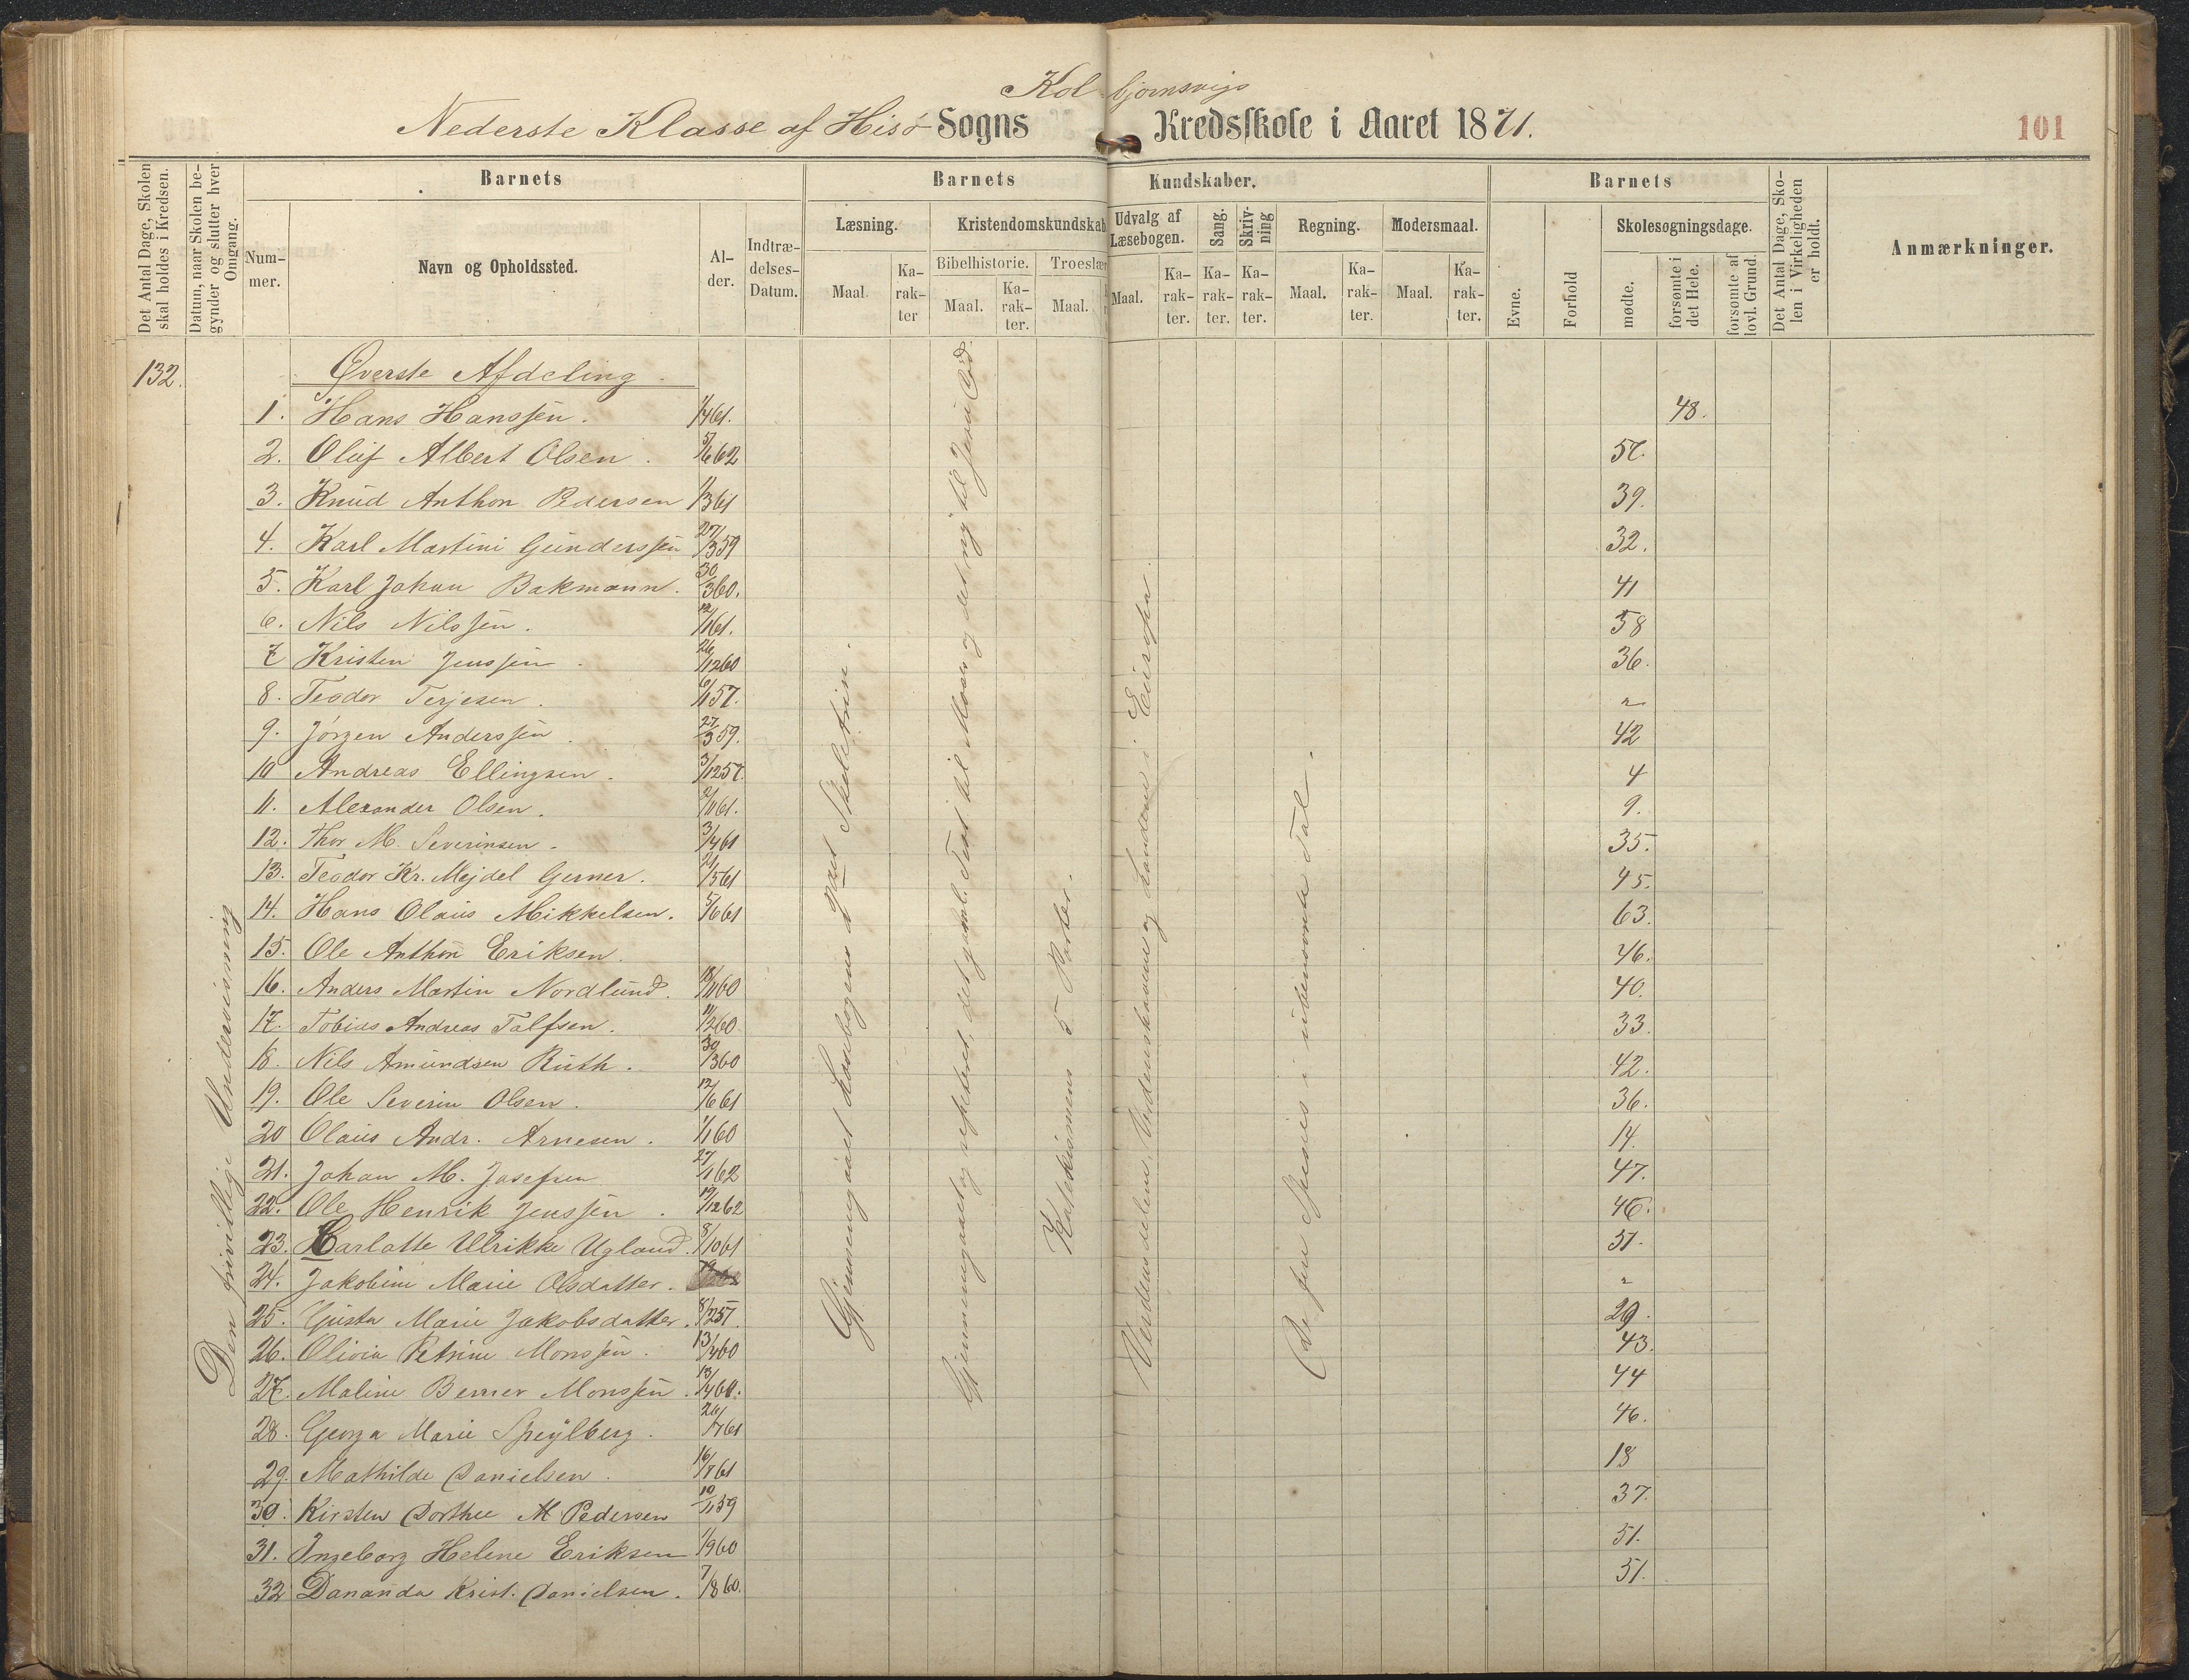 Kolbjørnsvigs
Nederste Klasse af Hisø Sogns Kredsskole i Aaret 1871.
101
Det Antal Dage, Skolen skal holdes i Kredsen.
Datum, naar Skolen begynder og slutter hver Omgang.
Barnets
Barnets Kundskaber.
Barnets
Det Antal Dage, Skolen i Virkeligheden er holdt.
Anmærkninger.
Nummer.
Navn og Opholdssted.
Alder.
Indtrædelses-Datum.
Læsning.
Kristendomskundskab
Udvalg af Læsebogen.
Sang.
Skrivning
Regning.
Modersmaal.
Evne.
Forhold
Skolesøgningsdage.
Bibelhistorie.
Troeslær
Maal.
Karakter
Maal.
Karakter.
Maal.
Maal.
Karakter.
Karakter.
Karakter.
Maal.
Karakter.
Maal.
Karakter.
mødte.
forsømte i det Hele.
forsømte af lovl. Grund.
132.
Øverste Afdeling.
1. Hans Hanssen. 1/4 61. 48.
2. Oluf Albert Olsen. 5/6 62 57.
3. Knud Anthon Pedersen 1/3 61 39.
4. Karl Martini Gunderssen 27/3 59 32.
5. Karl Johan Bakmann. 30/3 60. 41
6. Nils Nilssen. 12/1 61. 58
7 Kristen Jenssen. 26/12 60 36.
8. Teodor Terjesen. 6/1 57. "
9. Jørgen Anderssen. 27/3 59. 42
10 Andreas Ellingsen. 3/12 57. 4
11. Alexander Olsen. 2/11 61. 9.
12. Thor M. Severinsen. 3/4 61 35.
13. Teodor Kr. Mejdel Gerner. 21/5 61 45.
14. Hans Olaus Mikkelsen. 5/6 61 63.
15. Ole Anthon Eriksen. 46.
16. Anders Martin Nordlund. 18/11 60 40.
17. Tobias Andreas Talfsen. 11/2 60 33.
18. Nils Amundsen Ruth. 30/3 60 42.
19. Ole Severin Olsen. 12/6 61 36.
20 Olaus Andr. Arnesen. 1/1 60 14.
21. Johan M. Josefsen 27/1 62 47.
22. Ole Henrik Jenssen. 19/12 62 46.
23. Carlotte Ulrikke Ugland. 8/10 61 51.
24. Jakobine Marie Olsdatter. "
25. Gusta Marie Jakobsdatter. 8/2 57. 29.
26. Olivia Petrine Monssen. 13/4 60 43.
27. Maline Berner Monssen. 13/4 60. 44
28. Georga Marie Speylberg. 26/7 61 46.
29. Mathilde Danielsen. 16/7 61 18
30. Kirsten Dorthee M Pedersen 10/11 59 37.
31. Ingeborg Helene Eriksen 1/9 60 51.
32 Dananda Krist. Danielsen. 7/8 60. 51.
Den frivillige Undervisning
Gjennemgaaet Læsebogens 2 Skoletrin.
Gjennemgaaet og repeteret det gamle Test til Moses og det ny til Jesu Død
Katekismens 5 Parter.
Verdensdelene, Verdenshavene og Landene i Europa.
De fire Species i ubenævnte Tal.